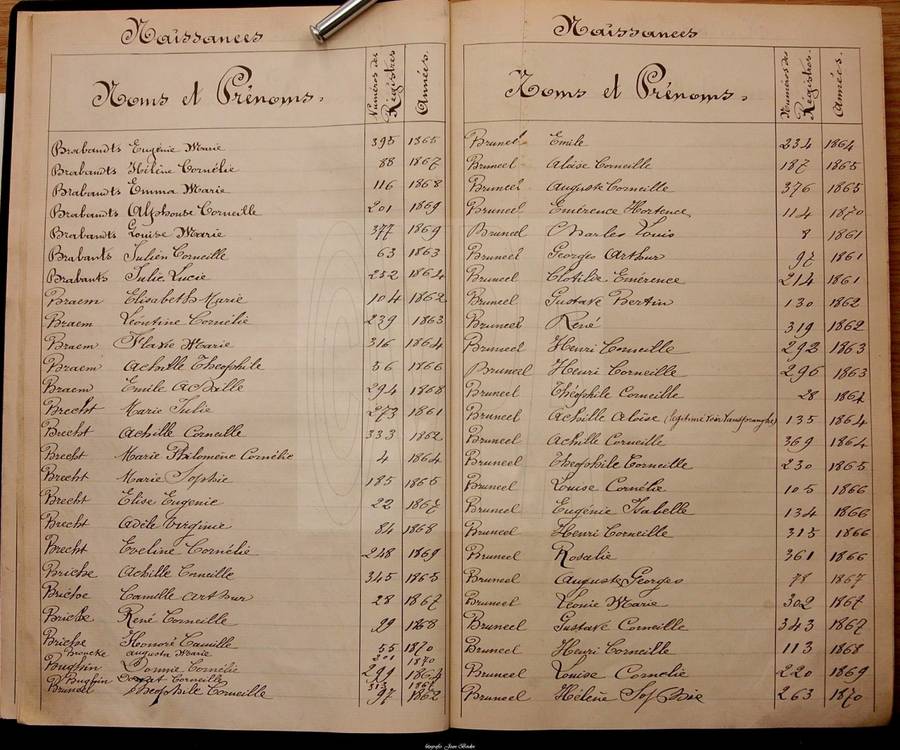 Naissances
Noms et Prénoms.
Numéros des Régistres
Années.
Brabandts Eugénie Marie 395 1865
Brabandts Hélène Cornélie 88 1867
Brabandts Emma Marie 116 1868
Brabandts Alphonse Corneille 201 1869
Brabandts Louise Marie 377 1869
Brabants Julien Corneille 63 1863
Brabants Julie Lucie 252 1864
Braem Elisabeth Marie 104 1862
Braem Léontine Cornélie 239 1863
Braem Flavie Marie 316 1864
Braem Achille Théophile 36 1866
Braem Emile Achille 294 1868
Brecht Marie Julie 273 1861
Brecht Achille Corneille 333 1862
Brecht Marie Philomène Cornélie 4 1864
Brecht Marie Sophie 185 1865
Brecht Elise Eugenie 22 1867
Brecht Adèle Virginie 84 1868
Brecht Eveline Cornélie 248 1869
Briche Achille Corneille 345 1865
Briche Camille Arthur 28 1867
Briche René Corneille 29 1868
Briche Honoré Camille 55 1870
Broucke Augusta Marie 201 1870
Bughin Donnie Cornélie 299 1864
Bughin Donat Corneille
Brunéel Théophile Corneille 97 1862
Naissances
Noms et Prénoms.
Numéros des Régistres.
Années.
Bruneel Emile 234 1864
Bruneel Aloise Corneille 187 1865
Bruneel Auguste Corneille 376 1865
Bruneel Emérence Hortence 114 1870
Bruneel Charles Louis 8 1861
Bruneel Georges Arthur 97 1861
Bruneel Clotilde Emérence 214 1861
Bruneel Gustave Bertin 130 1862
Bruneel René 319 1862
Bruneel Henri Corneille 292 1863
Bruneel Henri Corneille 296 1863
Bruneel Théophile Corneille 28 1864
Bruneel Achille Aloïse 135 1864
Bruneel Achille Corneille 369 1864
Bruneel Théophile Corneille 230 1865
Bruneel Louise Cornélie 105 1866
Bruneel Eugénie Isabelle 134 1866
Bruneel Henri Corneille 315 1866
Bruneel Rosalie 361 1866
Bruneel Auguste Georges 78 1867
Bruneel Léonie Marie 302 1867
Bruneel Gustave Corneille 343 1867
Bruneel Henri Corneille 113 1868
Bruneel Louise Cornélie 220 1869
Bruneel Hélène Sophie 263 1870